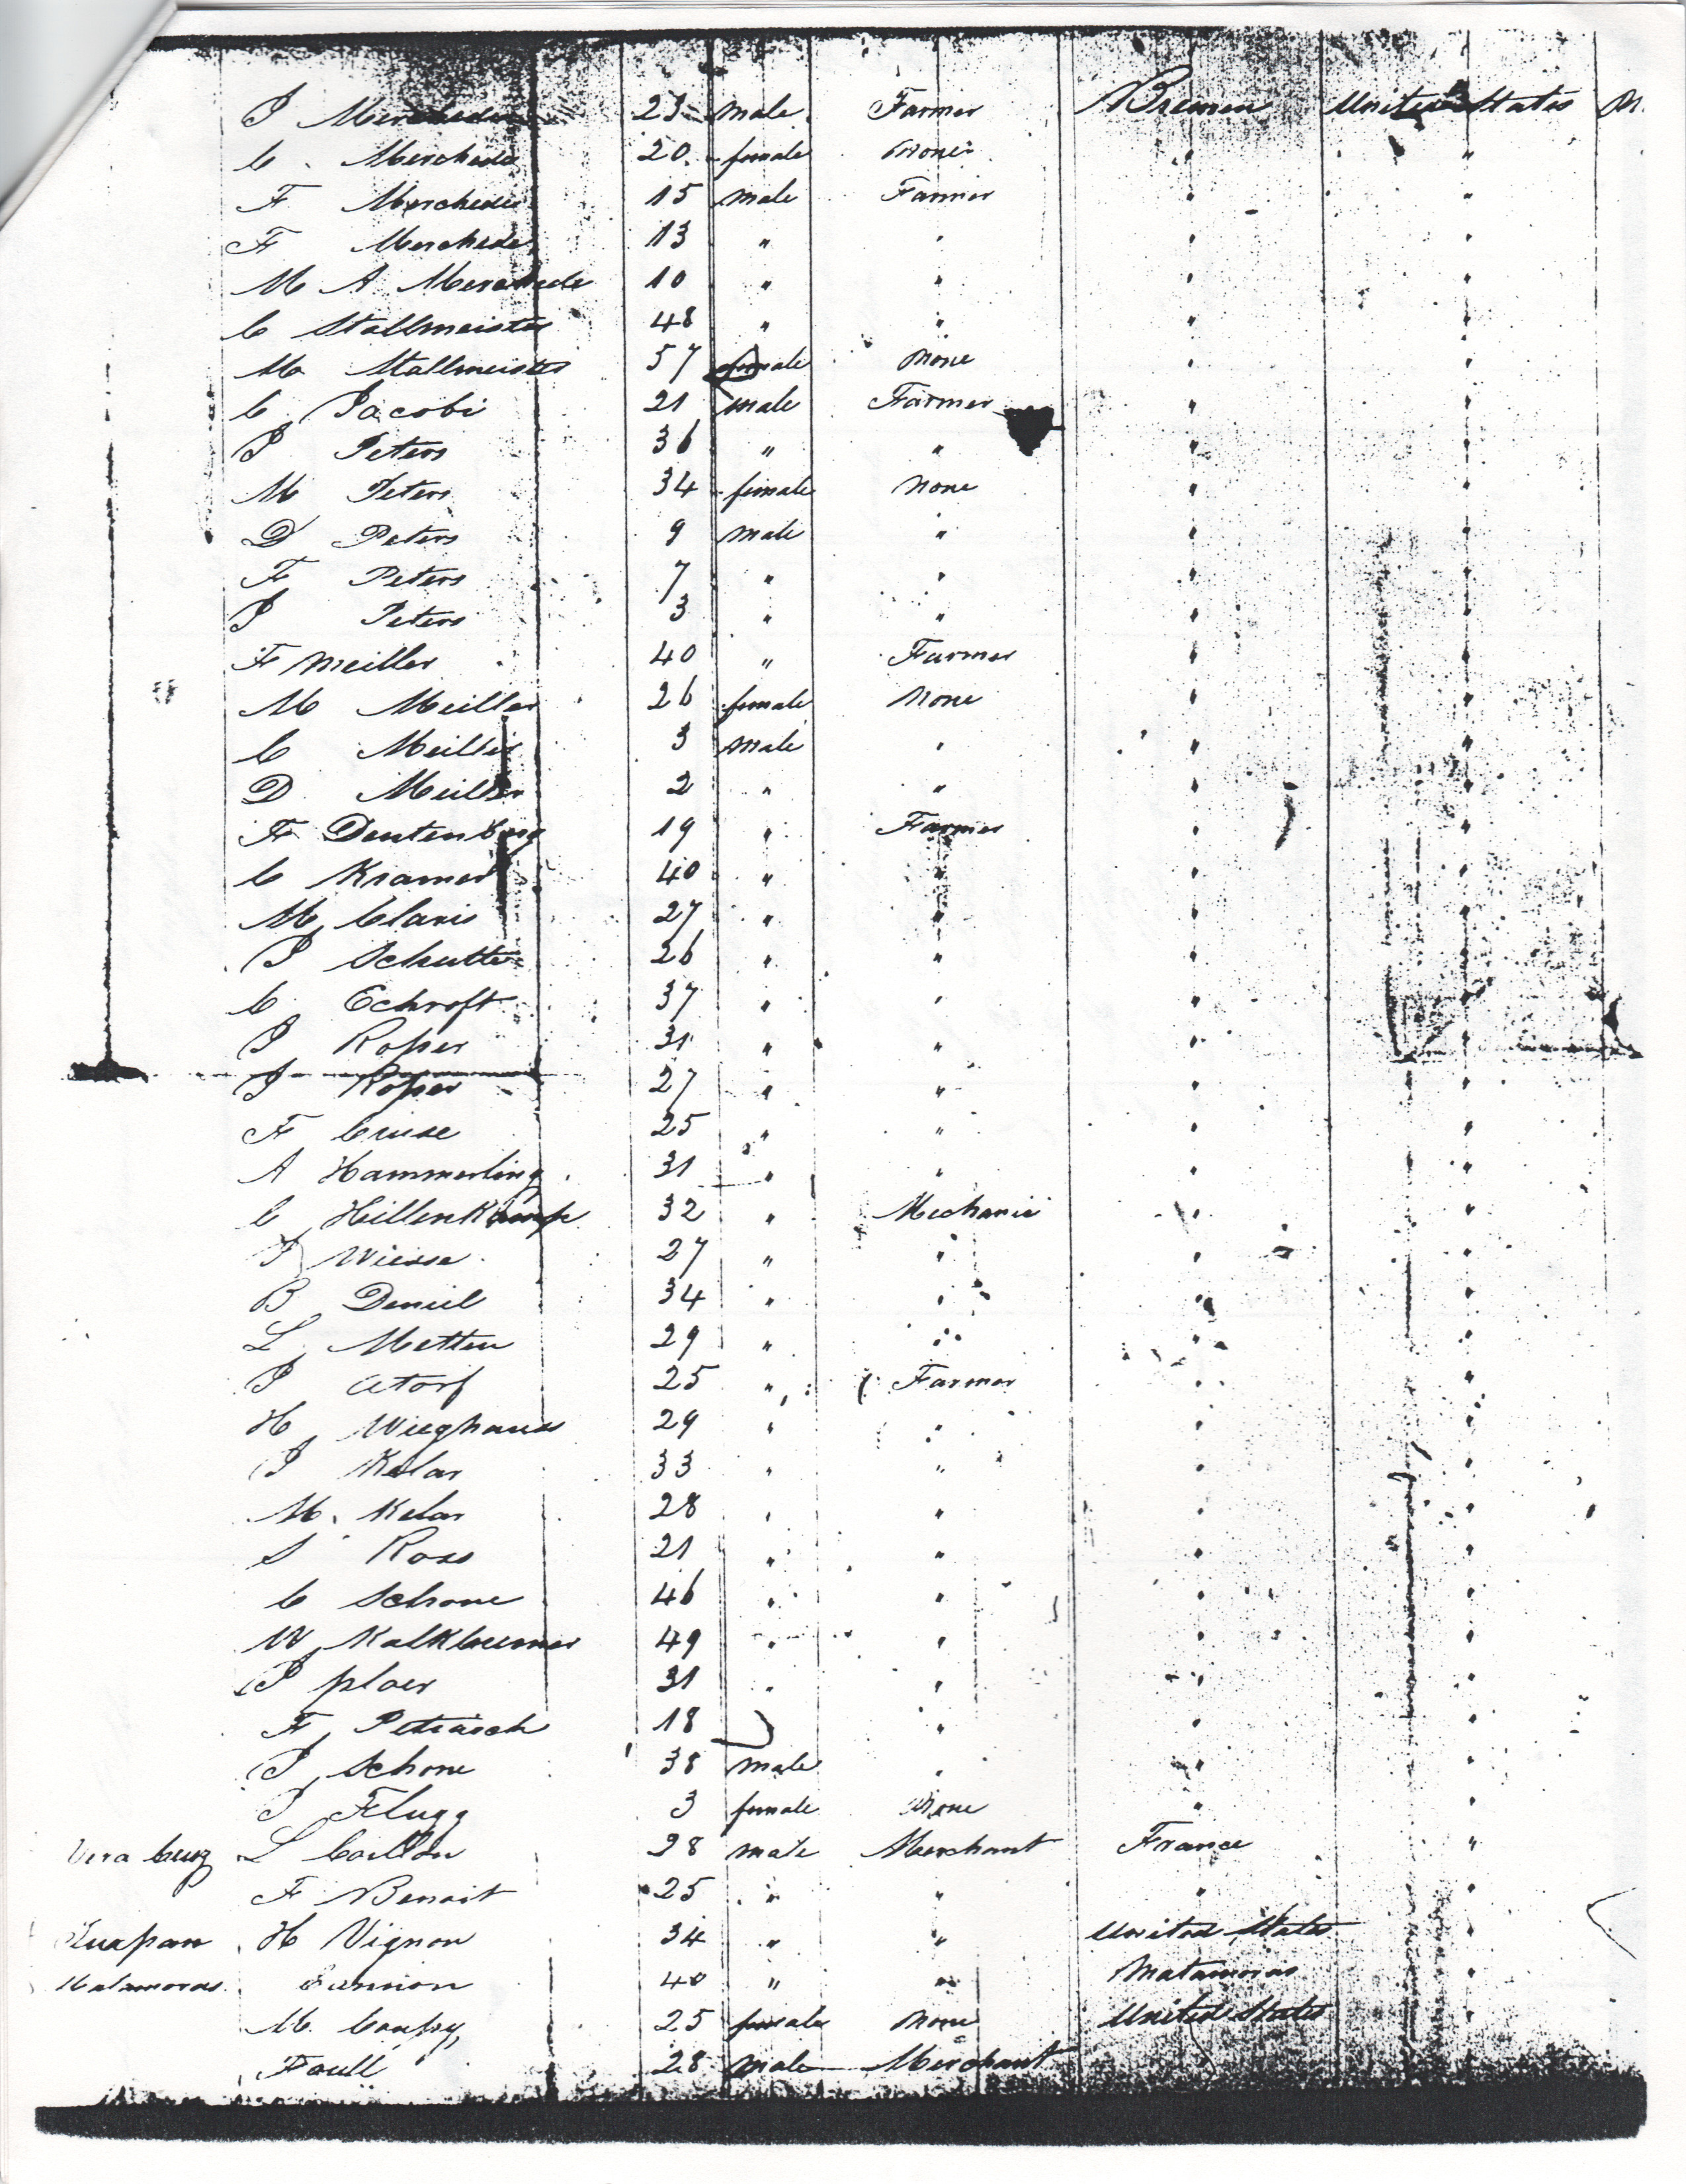 J Merchede 23 male Farmer Bremen United States
C. Merchede 20 female None " "
F Merchede 15 male Farmer " "
F Merchede 13 " " " "
M A Merchede 10 " " " "
C Stallmeister 48 " " " "
M Stallmeister 57 female None " "
C Jacobi 21 male Farmer " "
J Peters 36 " " " "
M Peters 34 female None " "
D Peters 9 male " " "
F Peters 7 " " " "
J Peters 3 " " " "
F Meiller 40 " Farmer " "
M Meiller 26 female None " "
C Meiller 3 male " " "
D Meiller 2 " " " "
F Deutenberg 19 " Farmer " "
C Kramer 40 " " " "
M Claris 27 " " " "
J Schutte 26 " " " "
C Echroft 37 " " " "
J Roper 31 " " " "
J Roper 27 " " " "
F Cruse 25 " " " "
A Hammerling 31 " " " "
C Hillenkamp 32 " Mechanic " "
J Wiesse 27 " " " "
B Deniel 34 " " " "
L Metten 29 " " " "
J Atorf 25 " Farmer " "
H Wieghaus 29 " " " "
J Kelar 33 " " " "
M. Kelar 28 " " " "
S Ross 21 " " " "
C Schone 46 " " " "
W 49 " " " "
J ploer 31 " " " "
F Petrasch 18 " " "
J Schone 38 male " " "
J Flugg 3 female None " "
Vera Cruz L 28 male Merchant France "
F Benoit 25 " " " "
Tuxpan H Vignon 34 " " United States "
Matamoras 40 " " Matamoras "
M. 25 female None United States "
Faull 28 male Merchant